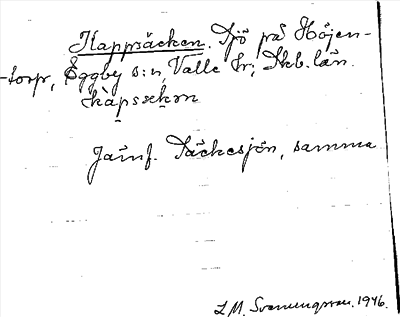 Kappsäcken. Sjö på Höjen-
torp, Eggby s:n, Valle hr; Skb. län.
kàpsekm
Jämf. Säckesjön, samma
L M. Svenungsson. 1946.